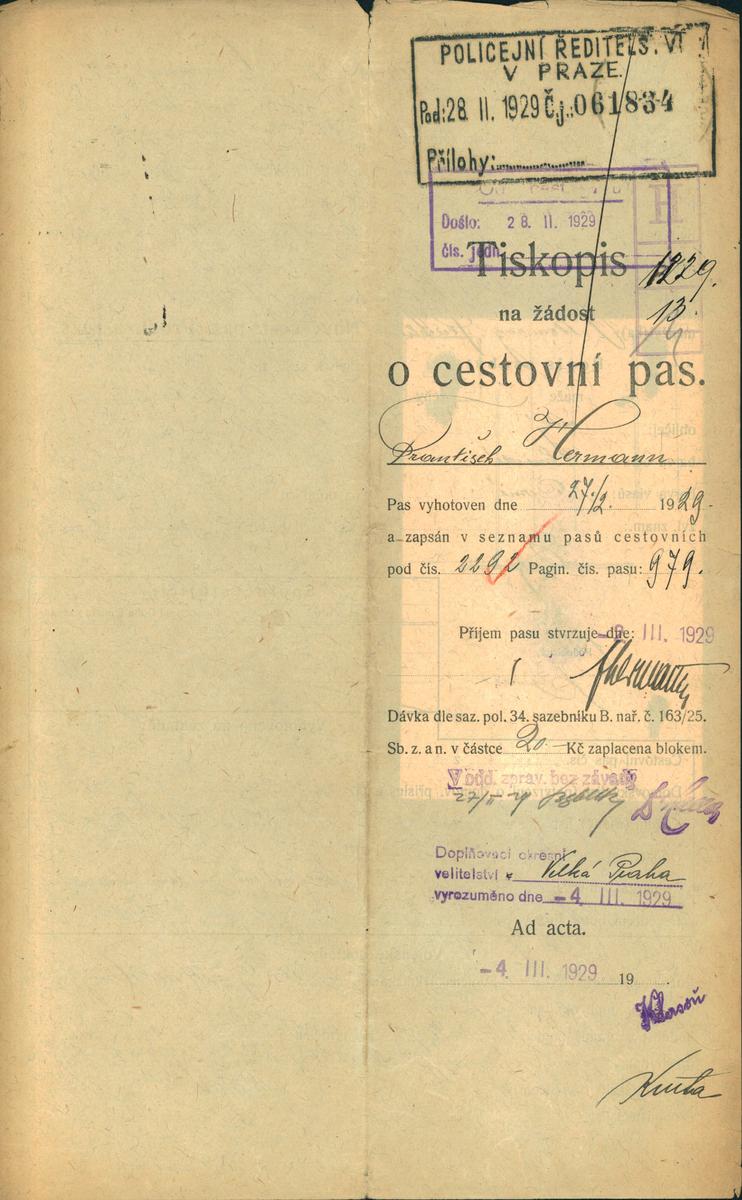 POLICEJNÍ ŘEDITELSTVÍ
V PRAZE.
Pod: 28. II. 1929 Čj.: 061834
Přílohy:
Došlo: 28. II. 1929
čís. jedn.
H
Tiskopis
1229.
13.
na žádost
o cestovní pas.
František Hermann
Pas vyhotoven dne 27./2. 1929.
a zapsán v seznamu pasů cestovních
pod čís. 2292 Pagin. čís. pasu: 979.
Příjem pasu stvrzuje dne: -2. III. 1929
Dávka dle saz. pol. 34. sazebníku B. nař. č. 163/25.
Sb. z. a n. v částce 20.— Kč zaplacena blokem.
V odd. zprav. bez závady
27/II 29
Doplňovací okresní
velitelství Velká Praha
vyrozuměno dne -4. III. 1929
Ad acta.
-4. III. 1929 19